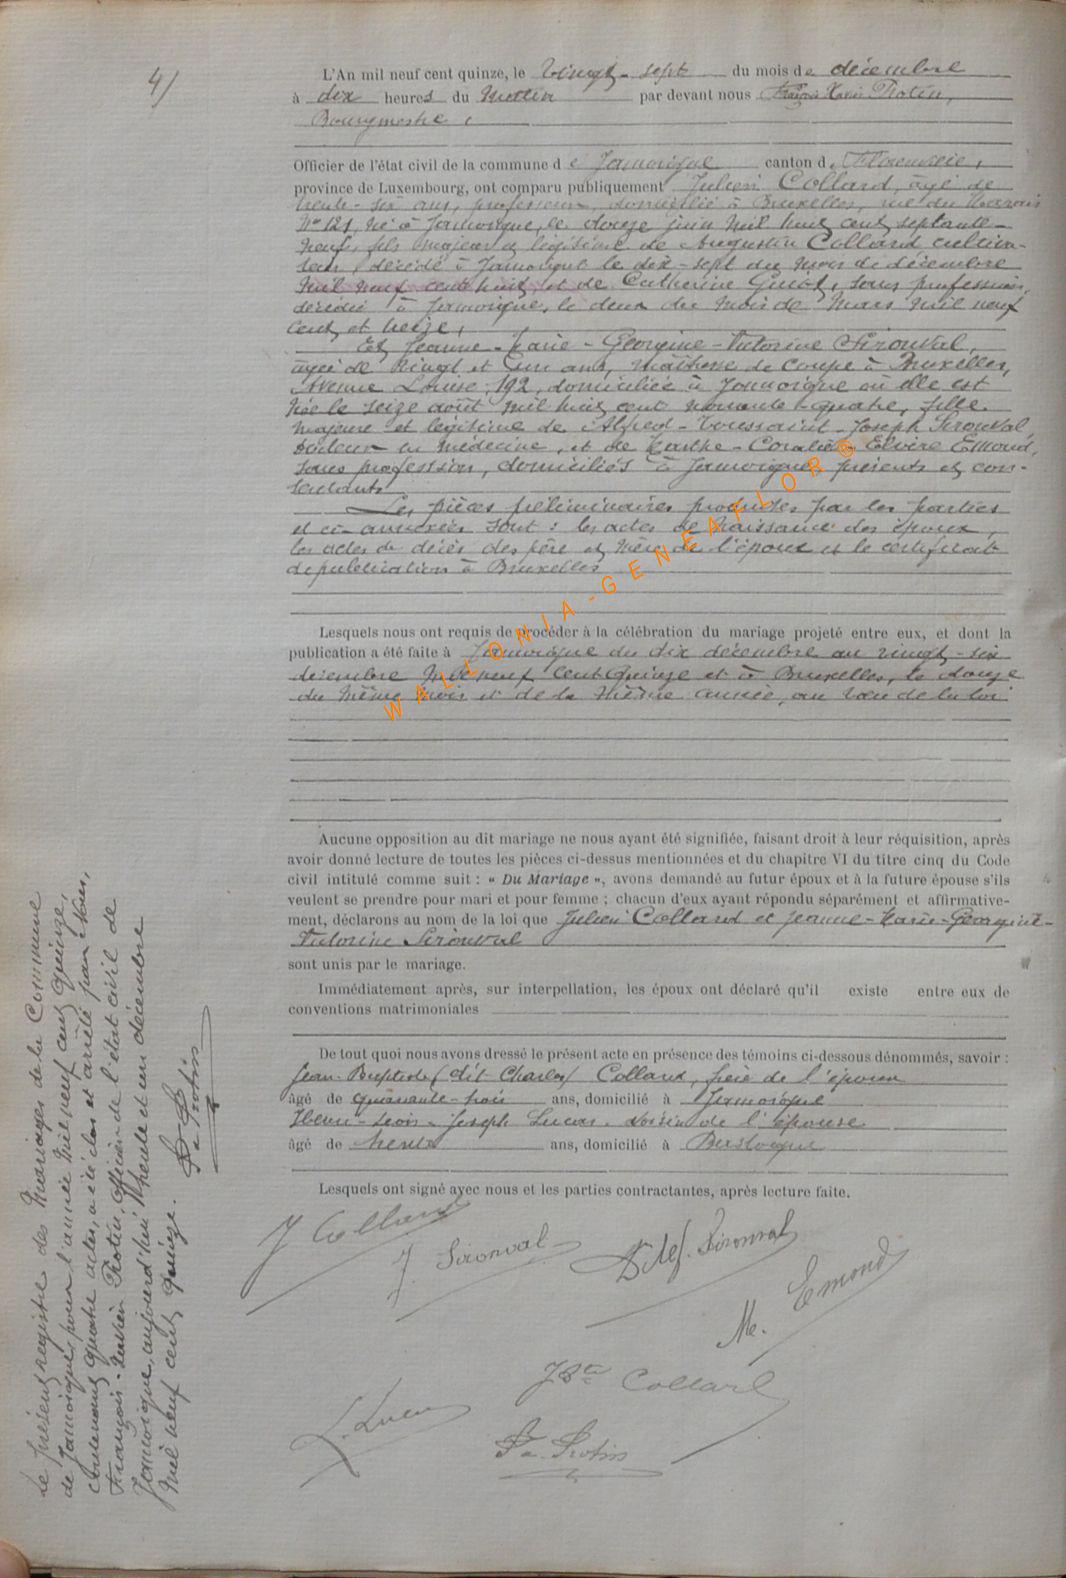 4/
L'An mil neuf cent quinze, le vingt-sept du mois de décembre
à dix heures du matin par devant nous François Xavier Protin,
Bourgmestre,
Officier de l'état civil de la commune de Jamoigne canton de Florenville,
province de Luxembourg, ont comparu publiquement Julien Collard, âgé de
trente-six ans, professeur, domicilié à Bruxelles, rue du
N° 121, né à Jamoigne, le douze juin mil huit cent septante-
neuf, fils majeur et légitime de Augustin Collard cultiva-
teur, décédé à Jamoigne le dix-sept du mois de décembre
mil neuf cent huit et de Catherine, sans profession,
décédée à Jamoigne, le deux du mois de Mars mil neuf
cent et treize,
Et Jeanne-Marie-Georgine-Victorine Sironval,
âgée de vingt et un ans, maîtresse de coupe à Bruxelles,
Avenue Louise, 192, domiciliée à Jamoigne où elle est
née le seize août mil huit cent nonante-quatre, fille
majeure et légitime de Alfred-Toussaint-Joseph Sironval,
Docteur en médecine, et de Marthe-Coralie-Elvire Emond,
sans profession, domiciliés à Jamoigne présents et con-
sentants
Les pièces préliminaires produites par les parties
et ci-annexées sont : les actes de Naissance des époux,
les actes de décès des père et mère de l'époux et le certificat
de publication à Bruxelles
Lesquels nous ont requis de procéder à la célébration du mariage projeté entre eux, et dont la
publication a été faite à Jamoigne du dix décembre au vingt-six
décembre mil neuf cent quinze et à Bruxelles, le douze
du même mois et de la même année, au vœu de la loi
Aucune opposition au dit mariage ne nous ayant été signifiée, faisant droit à leur réquisition, après
avoir donné lecture de toutes les pièces ci-dessus mentionnées et du chapitre VI du titre cinq du Code
civil intitulé comme suit : « Du Mariage », avons demandé au futur époux et à la future épouse s'ils
veulent se prendre pour mari et pour femme ; chacun d'eux ayant répondu séparément et affirmative-
ment, déclarons au nom de la loi que Julien Collard et Jeanne-Marie-Georgine-
Victorine Sironval
sont unis par le mariage.
Immédiatement après, sur interpellation, les époux ont déclaré qu'il existe entre eux de
conventions matrimoniales
De tout quoi nous avons dressé le présent acte en présence des témoins ci-dessous dénommés, savoir :
Jean-Baptiste (dit Charles) Collard, frère de l'époux
âgé de quarante-trois ans, domicilié à Jamoigne
Léon-Joseph Lucas, voisin de l'épouse
âgé de trente ans, domicilié à
Lesquels ont signé avec nous et les parties contractantes, après lecture faite.
J Collard
J. Sironval
Dr Alf. Sironval
M. Emond
JBte Collard
L. Lucas
Fx Protin
Le présent registre des Mariages de la Commune
de Jamoigne, pour l'année mil neuf cent quinze,
contenant quatre actes, a été clos et arrêté par Nous,
François-Xavier Protin, officier de l'état civil de
Jamoigne, aujourd'hui trente et un décembre
mil neuf cent quinze.
Fx Protin
WALLONIA-GENEAFLOR ©